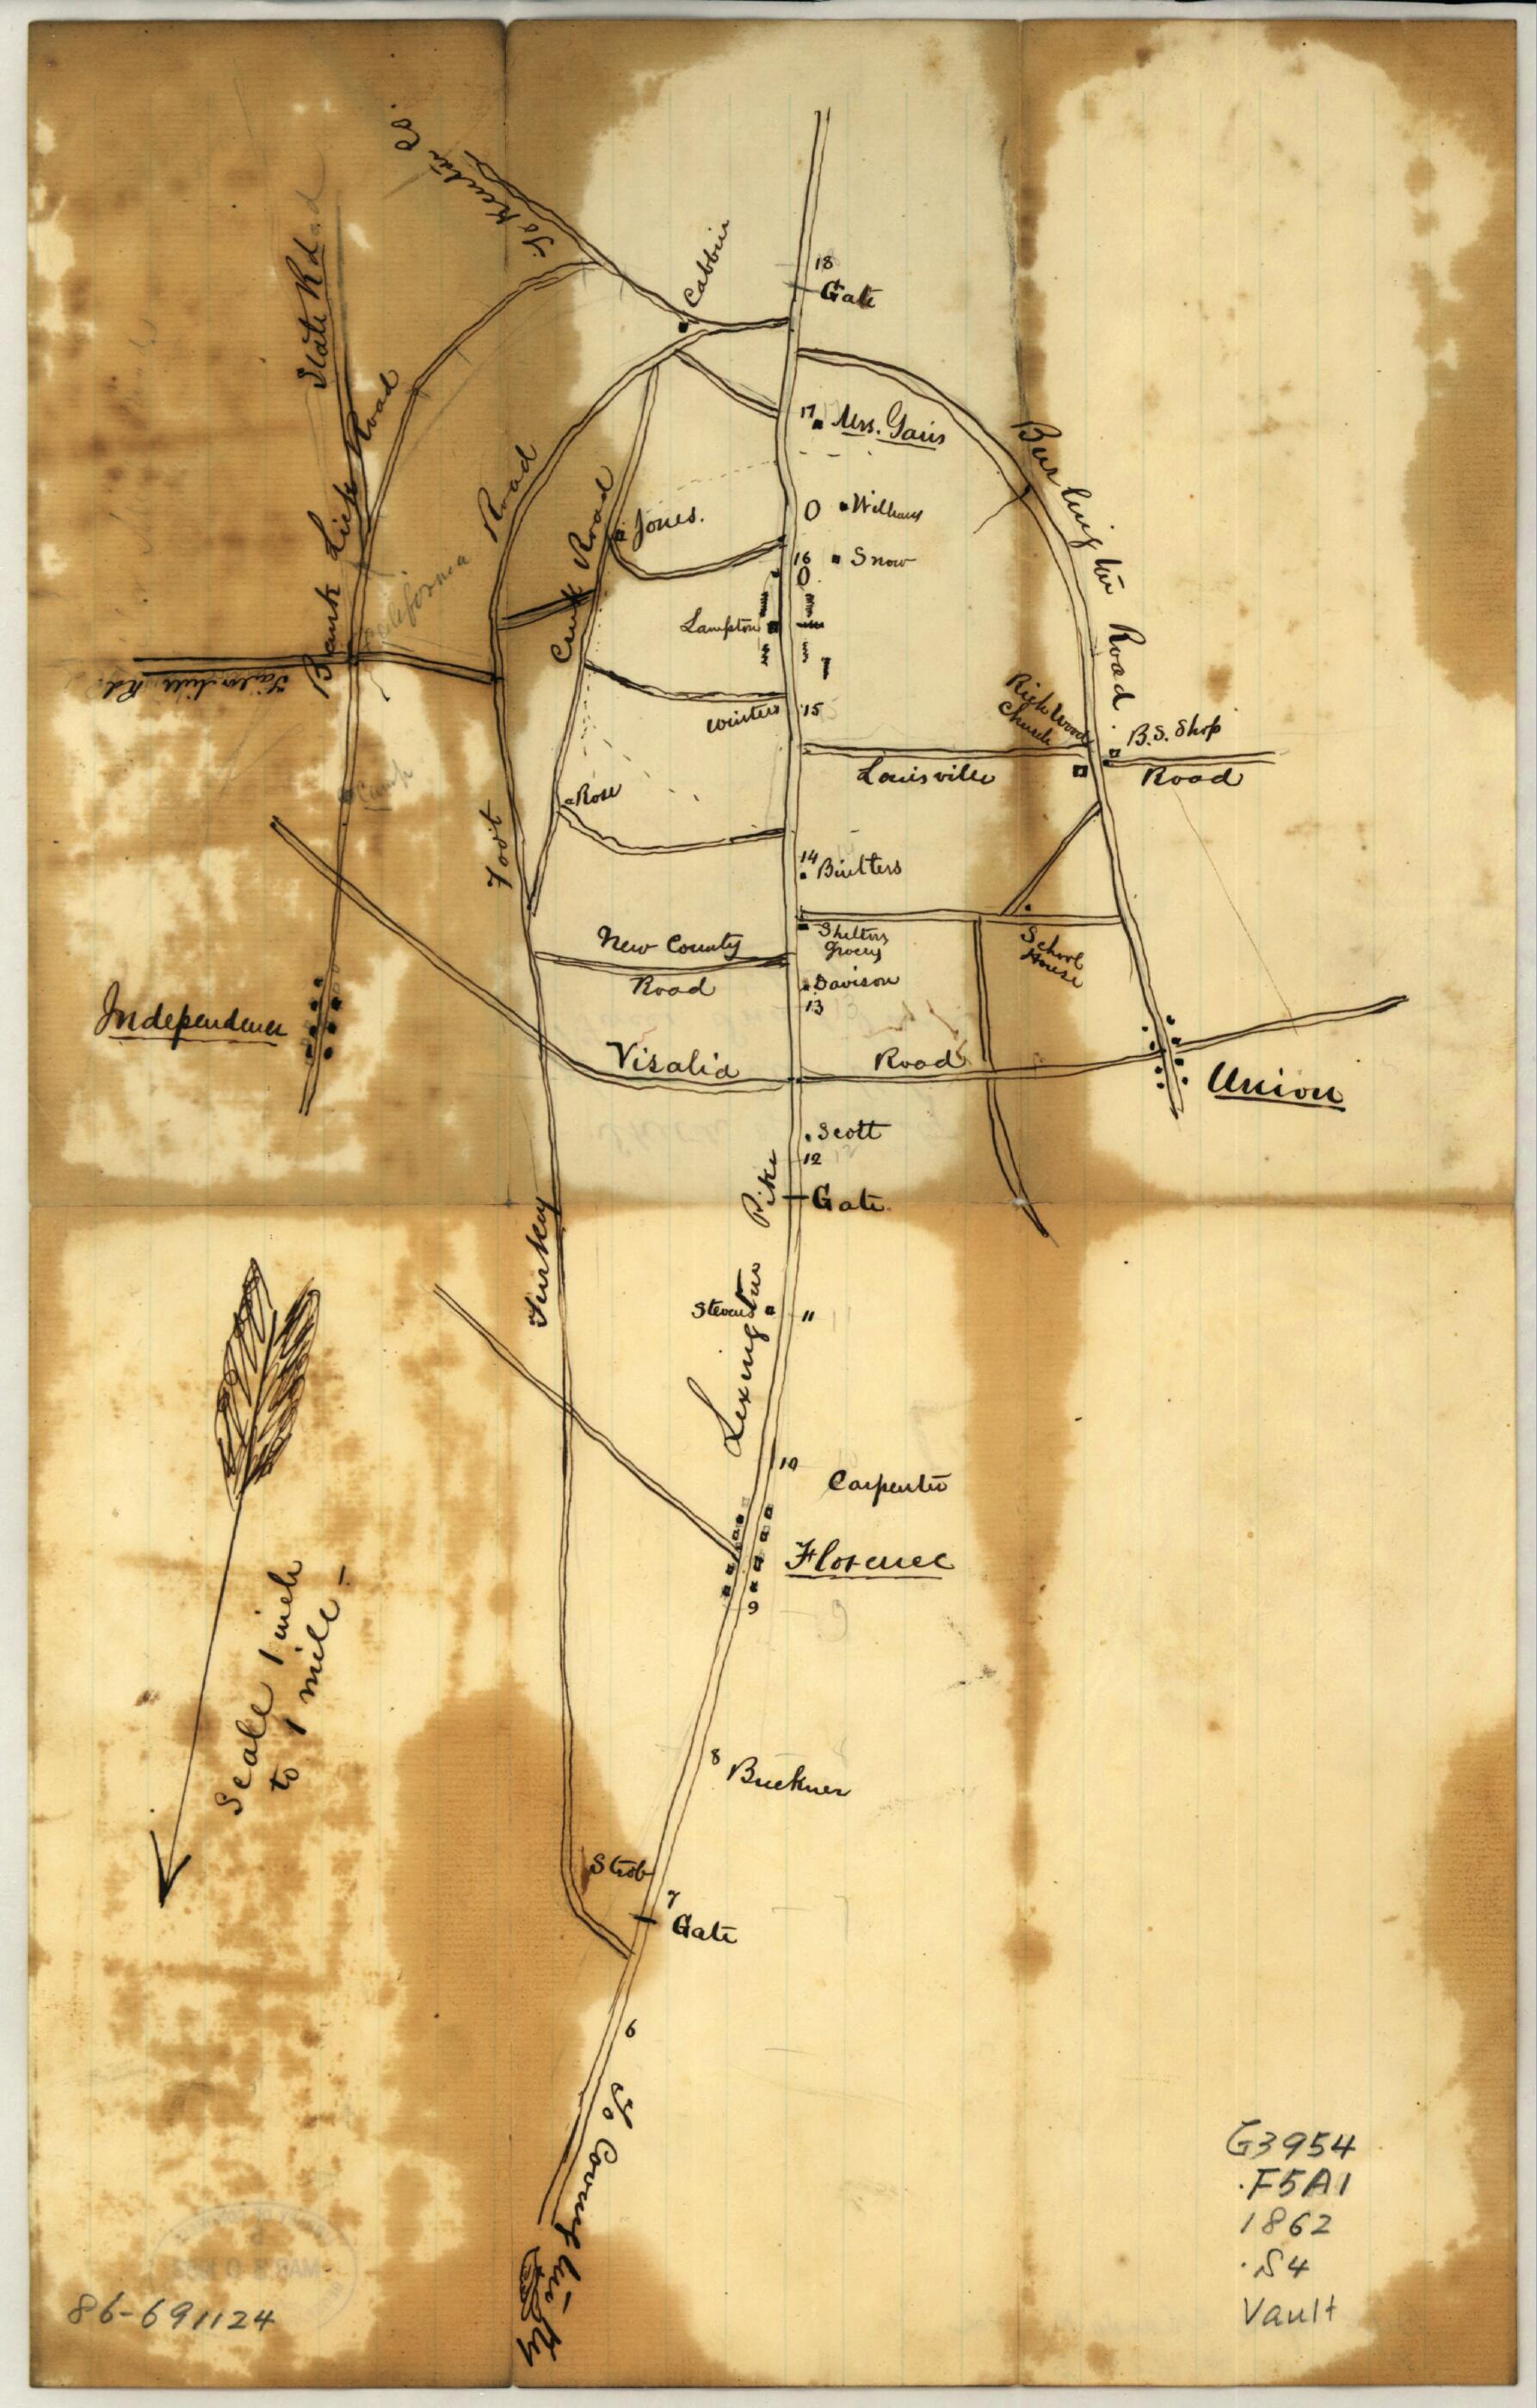 To Kenton Co.
State Rd.
Cabbin
18
Gate
Bank Lick Road
17
Mrs. Gains
Burlington Road
Road
Jones.
O
Williams
16
Snow
O
California
Cruit Road
Lampton
Winsters
15
Rich Wood
Church
B.S. Shop
Louisville
Road
Camp
Rose
Foot
14
Biulters
Sheltons
Grocery
School
House
New County
Road
Davison
13
Independence
Visalia
Road
Union
Scott
12
Pike
Gate
Turkey
Stevens
11
Lexington
10
Carpenter
Florence
9
Scale 1 inch
to 1 mile -
8
Buckner
Strob
7
Gate
6
To Covington Ky
G3954
.F5A1
1862
.S4
Vault
86-691124